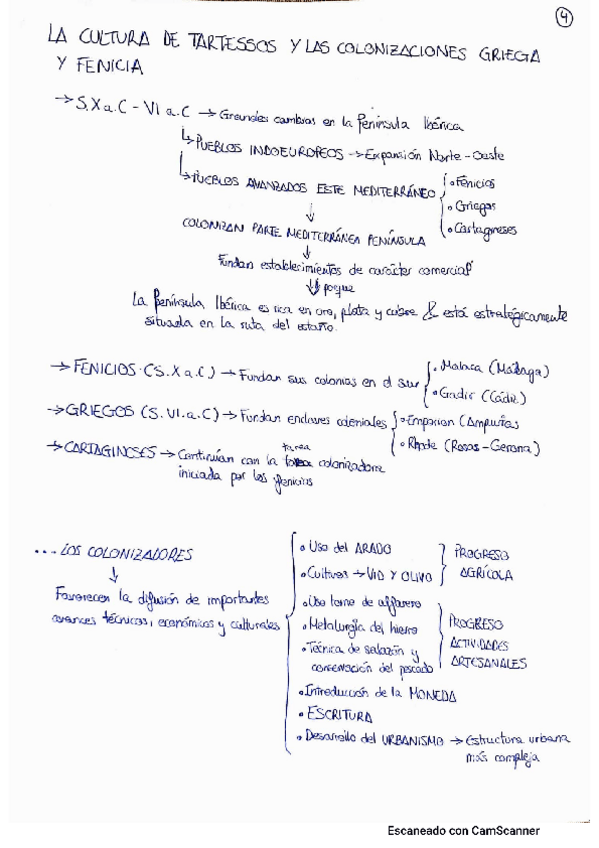 4
LA CULTURA DE TARTESSOS Y LAS COLONIZACIONES GRIEGA
Y FENICIA
→ S.X a.C - VI a.C → Grandes cambios en la Península Ibérica
↳ PUEBLOS INDOEUROPEOS → Expansión Norte-Oeste
↳ PUEBLOS AVANZADOS ESTE MEDITERRÁNEO
• Fenicios
• Griegos
• Cartagineses
↓
COLONIZAN PARTE MEDITERRÁNEA PENÍNSULA
↓
Fundan establecimientos de carácter comercial
⇓ porque
La Península Ibérica es rica en oro, plata y cobre & está estratégicamente
situada en la ruta del estaño.
→ FENICIOS (S. X a.C) → Fundan sus colonias en el sur
• Malaca (Málaga)
• Gadir (Cádiz)
→ GRIEGOS (S. VI a.C) → Fundan enclaves coloniales
• Emporion (Ampurias)
• Rhode (Rosas - Gerona)
→ CARTAGINESES → Continúan con la tarea colonizadora
iniciada por los fenicios
... LOS COLONIZADORES
↓
Favorecen la difusión de importantes
avances técnicos, económicos y culturales
• Uso del ARADO
• Cultivos → VID Y OLIVO
PROGRESO
AGRÍCOLA
• Uso torno de alfarero
• Metalurgia del hierro
• Técnica de salazón y
conservación del pescado
PROGRESO
ACTIVIDADES
ARTESANALES
• Introducción de la MONEDA
• ESCRITURA
• Desarrollo del URBANISMO → Estructura urbana
más compleja
Escaneado con CamScanner